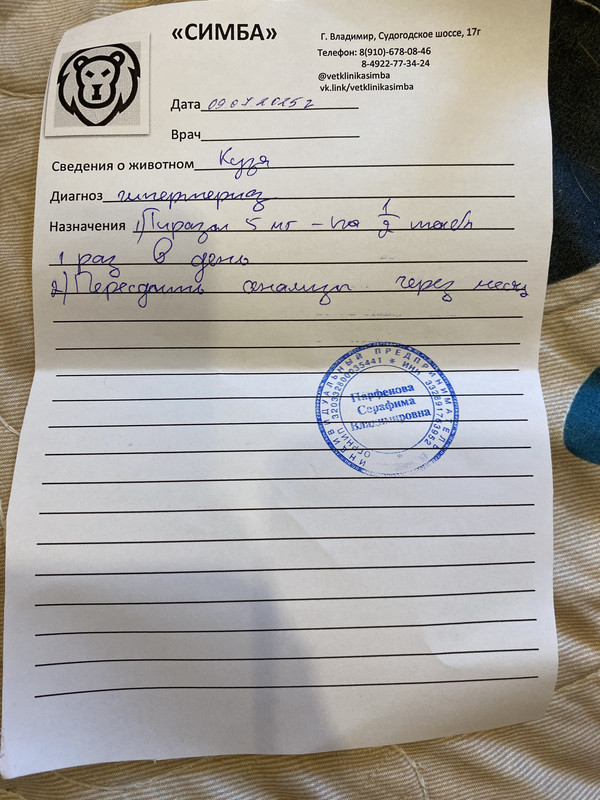 «СИМБА»
Г. Владимир, Судогодское шоссе, 17г
Телефон: 8(910)-678-08-46
8-4922-77-34-24
@vetklinikasimba
vk.link/vetklinikasimba
Дата 09 07 2025 г
Врач
Сведения о животном Кузя
Диагноз гипертериоз
Назначения 1) Тиразол 5 мг – по 1/2 табл
1 раз в день
2) Пересдать анализы через месяц
ИНДИВИДУАЛЬНЫЙ ПРЕДПРИНИМАТЕЛЬ
ОГРНИП 320332800035441 * ИНН 332891763952
Парфенова
Серафима
Владимировна